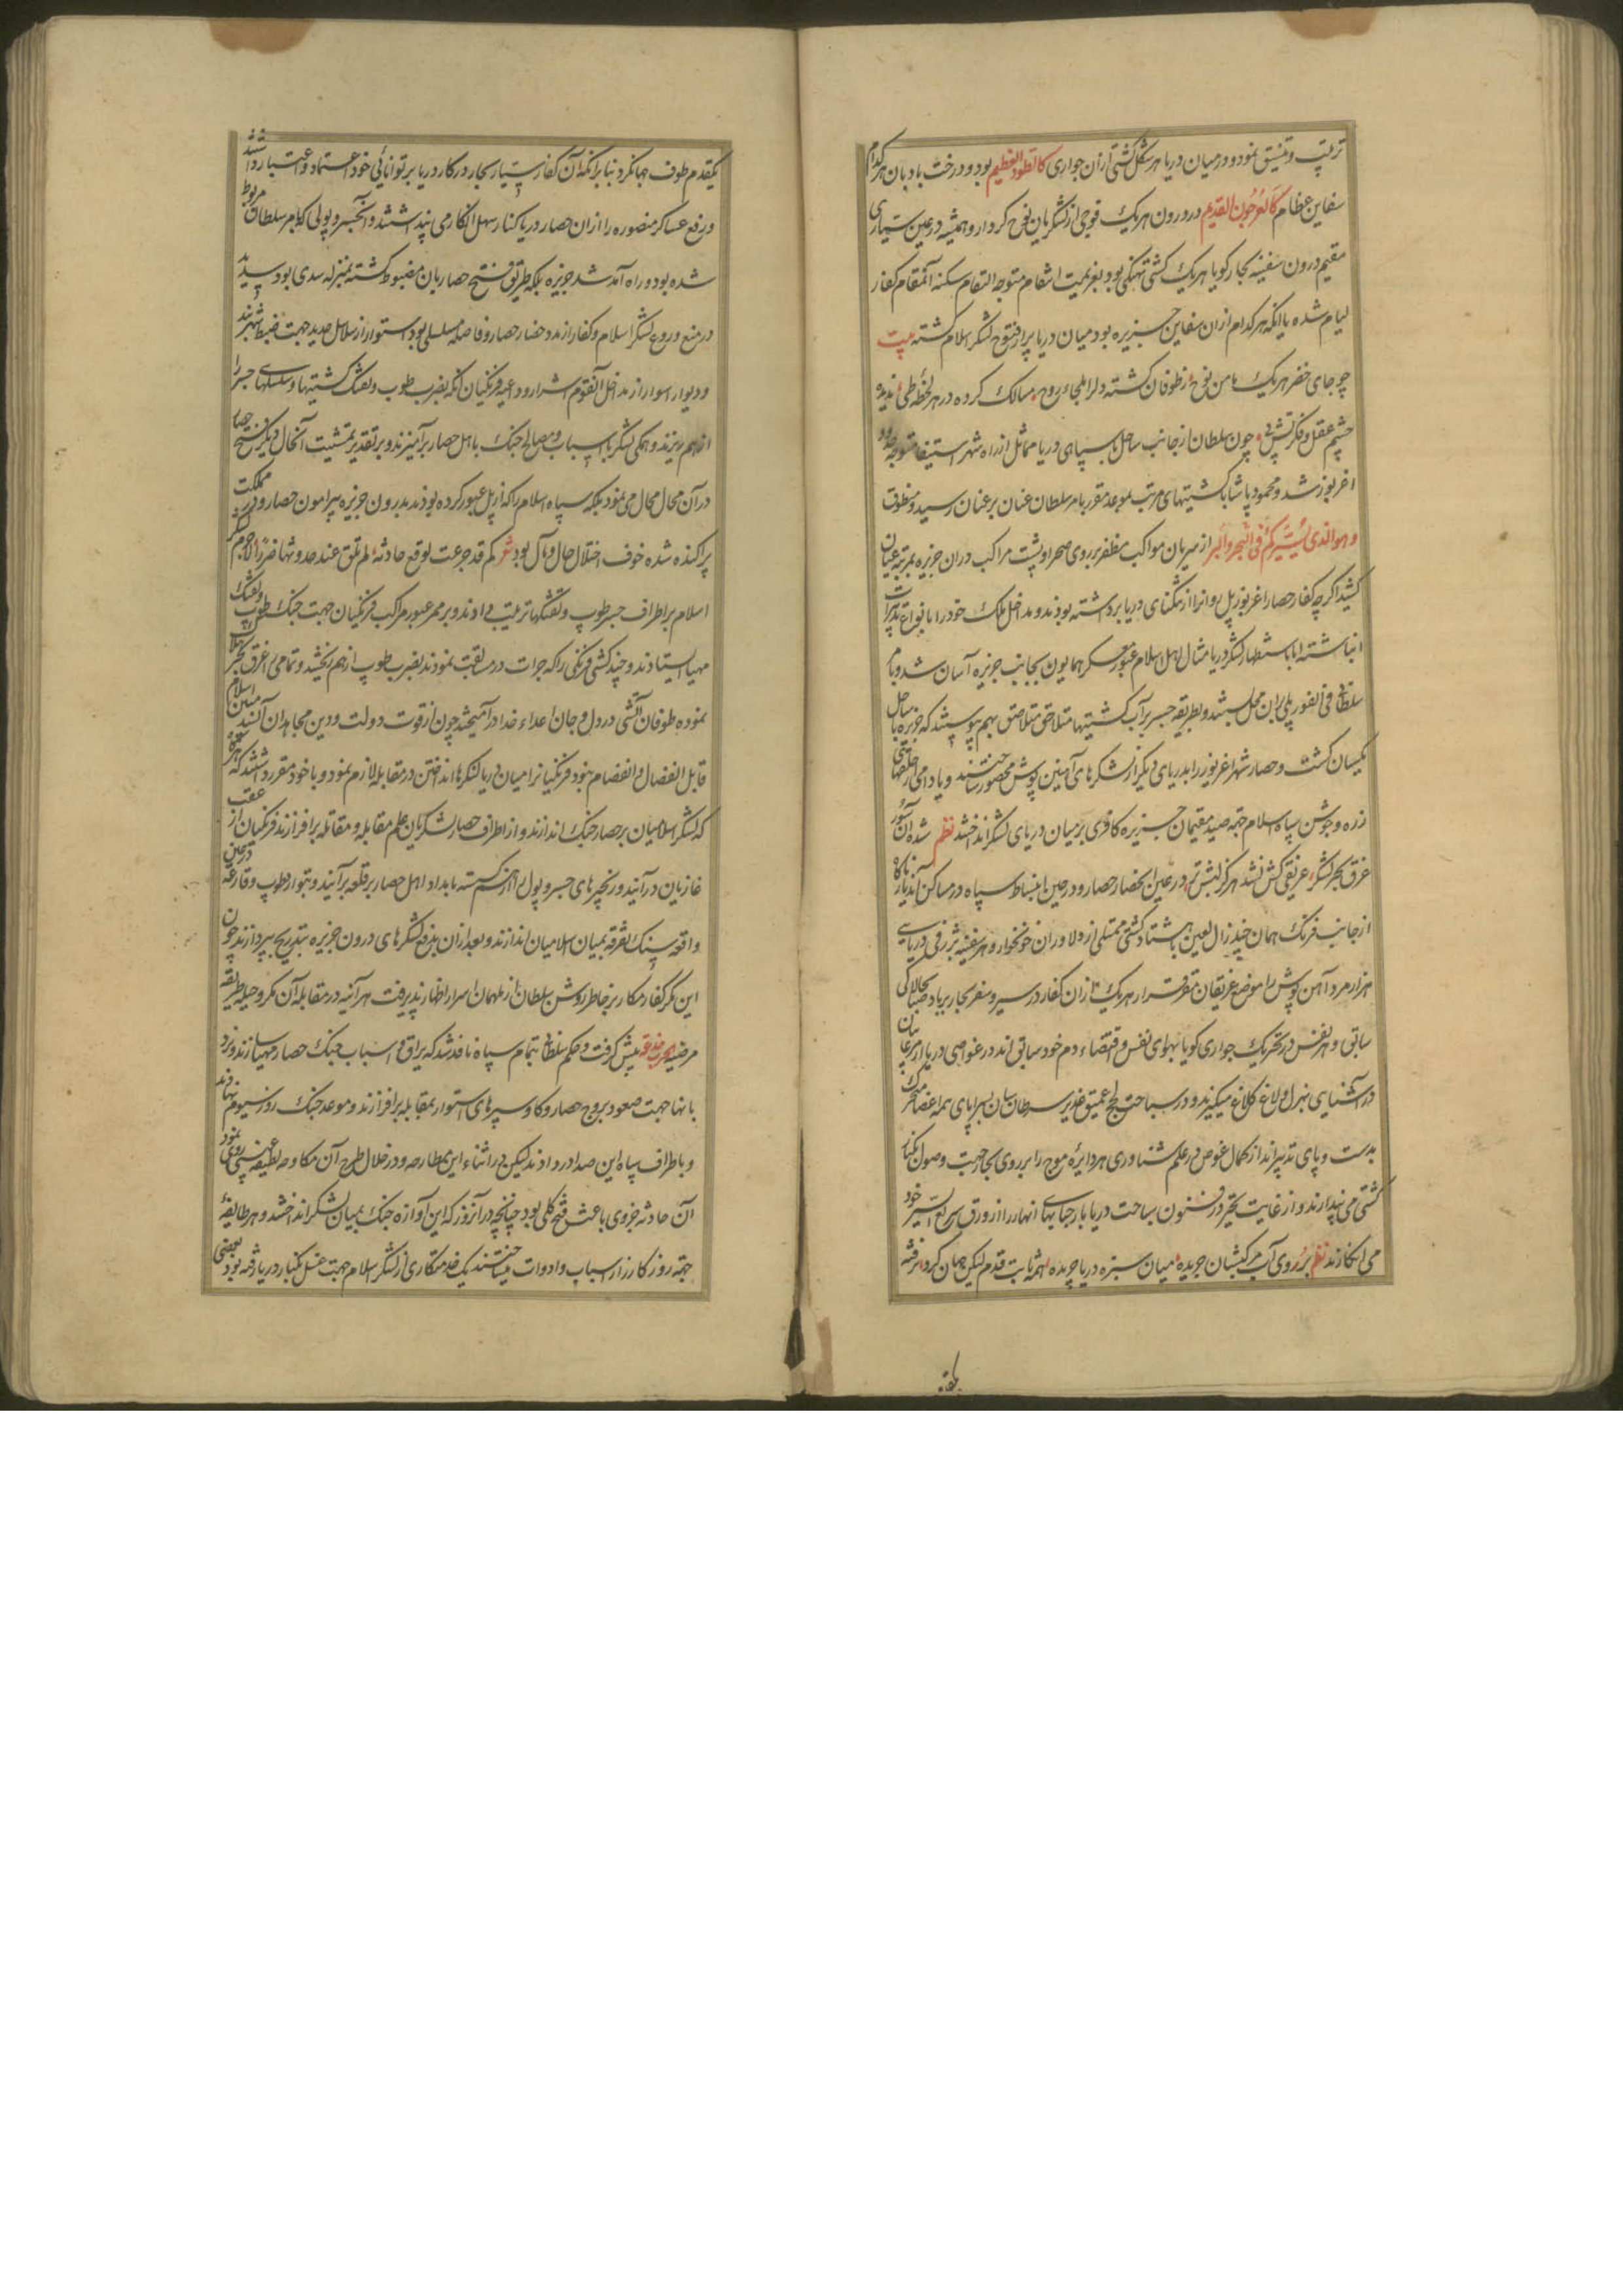 ترتیب و تنسیق نمود و در میان دریا هر شکل کشتی ازان جواری کالطود العظیم بود و درخت بادبان هر کدام
سفاین عظام کالعرجون القدیم و در درون هر یک فوجی از لشکریان نوح کردار و همیشه در عین سیاری
مقیم درون سفینه بحار کویا هر یک کشتی نهنکی بود بعزیمت انتقام متوجه التقام سکنه آنمقام کفار
لیام شده یا آنکه هر کدام ازان سفاین جزیره بود میان دریا پر از فتوح لشکر اسلام کشته بیت
چو جای خضر هر یک مامن نوح ز طوفان کشته دلرا ملجاء روح مسالک کرده در هر لحظه طی ندیده
چشم عقل و فکر پی چون سلطان از جانب ساحل با سپاهی دریا مماثل از راه شهر متوجه حدود
اغربوز شد و محمود پاشا با کشتیهای مرتب بموعد مقرر بامر سلطان عنان بر عنان رسید و منطوقت
و هو الذی یسیرکم فی البحر و البر از سریان مواکب مظفر بر روی صحرا و پشت مراکب دران جزیره بمرتبه عیان
کشید اکرچه کفار حصار اغربوز پل روانرا از تنکنای دریا برداشته بودند و مداخل ملک خود را بانواع تدبیرات
انباشته اما باستظهار لشکر دریا مثال اهل اسلام عبور معسکر همایون بجانب جزیره آسان شد و بامر
سلطانی فی الفور پلی بران محل بستند و بطریقه جسر بر آب کشتیها متلاحق متلاصق بهم پیوستند که جزیره با ساحل
یکسان کشت و حصار شهر اغربوز را بدریای دیکر از لشکرهای آهنین پوش محصور ساختند و یا دامی از حلقهای
زره و جوشن سپاه اسلام جهة صید مقیمان جزیره کافری بر میان دریای لشکر انداختند نظم شده آن
غرق بحر لشکر غریقی کش نشد هرکز در عین انحصار حصار و در حین انبساط سپاه در مساکن آندیار ناکاه
از جانب فرنک همان خیل زال لعین هشتاد کشتی ممتلی از دلاوران خونخوار و هر سفینه ژرفی در دریای
هزار مرد آهن پوش را موضع قرار هر یک ازان کفار در سیر و سفر بحار بر باد صبا بچالاکی
سابق و هر نفس در تحریک جواری کویا بهوای نفس و اقتضاء دم خود سابق اند در غواصی دریا از مرغابیان
در آشنایی بهزل و لاغ میکیرند و در سباحت لج عمیق غدیر سرطان سان بسراپای همه اعضا متحرک
بدست و پای تدبیراند از کمال غوص در علم شناوری هر دایره موج را بر روی بحار جهت وصول بکنار
کشتی می پندارند و از غایت تبحر در فنون سباحت دریا بار حبابهای انهار را از ورق سریع السیر خود
می انکارند نظم بروی آب مرکبشان جریده میان سبزه دریا چریده همه ثابت قدم لیکن جهان کرد نرفته
یکقدم طوف جهانکرد بنا بر آنکه آن کفار سیار بحار در کار دریا بر توانائی خود اعتماد و اعتبار داشتند
و رفع عساکر منصوره را ازان حصار دریا کنار سهل انکار می پنداشتند و آن جسر و پولی که بامر سلطان مربوط
شده بود و راه آمد شد جزیره بلکه طریق فتح حصار بان مضبوط کشته بمنزله سدی بود
در منع و روع لشکر اسلام و کفار از حصار و فاصله مسلسلی بود استوار از سلاسل حدید جهت ضبط شهربند
و دیوار اسوار از مداخل آنقوم شرار و داعیه فرنکیان آنکه بضرب طوب و تفنک کشتیها و سلسلهای جسر را
از هم ریزند و همکی لشکر با اسباب و مصالح جنک باهل حصار برآمیزند و بر تقدیر تمشیت آنحال دیکر فتح حصار
در آن محال محال می نمود بلکه سپاه اسلام را که از پل عبور کرده بودند بدرون جزیره پیرامون حصار و در مملکت
پراکنده شده خوف اختلال حال و مآل بود شعر کم قد جرعت لوقع حادثة لم تلق عند حدوثها ضررا لاجرم لشکر
اسلام بر اطراف جسر طوب و تفنکها ترتیب دادند و بر ممر عبور مراکب فرنکیان جهت جنک طوب و تفنک
مهیا ایستادند و چند کشتی فرنکی را که جرات در مسابقت نمودند بضرب طوب از هم ریختند و تمامی را غرق بحر
نموده طوفان آتشی در دل و جان اعداء خدا در آمیختند چون از قوت دولت و دین مجاهدان اسلام
قابل انفصال و انفصام نبود فرنکیانرا میان دریا لنکرها انداختن در مقابله لازم نمود و با خود مقرر داشتند که
که لشکر اسلامیان بر حصار جنک اندازند و از اطراف حصار لشکریان علم مقابله و مقاتله برافرازند فرنکیان از عقب
غازیان درآیند و زنجیرهای جسر و پول را از هم کسسته بامداد اهل حصار بر قلعه برآیند و بتواتر طوب و قارعه
واقعه سنک تفرقه بمیان اسلامیان اندازند و بعد ازان بدفع لشکرهای درون جزیره بتدریج پردازند چون
این مکر کفار مکار بر خاطر روشن سلطان از ملهمان اسرار اظهار پذیرفت هر آینه در مقابله آن مکر و حیله طریقه
مرضیه الحرب خدعه پیش کرفت و حکم سلطانی بتمام سپاه نافذ شد که یراق و اسباب جنک حصار مهیا سازند و نرد
بانها جهت صعود بروج حصار و کاو سپرهای استوار بمقابله برافرازند و موعد جنک روز سیوم نهادند
و باطراف سپاه این صدا در دادند لیکن در اثناء این مطارحه و در خلال طرح آن مکاوحه لطیفه غیبی روی نمود
آن حادثه جزوی باعث فتح کلی بود چنانچه در آنروز که این آوازه جنک بمیان لشکر انداختند و هر طایفه
جهة روز کارزار اسباب و ادوات میساختند یک خدمتکاری از لشکر اسلام جهت غسل بکنار دریا رفته بود بعضی
یکقدم